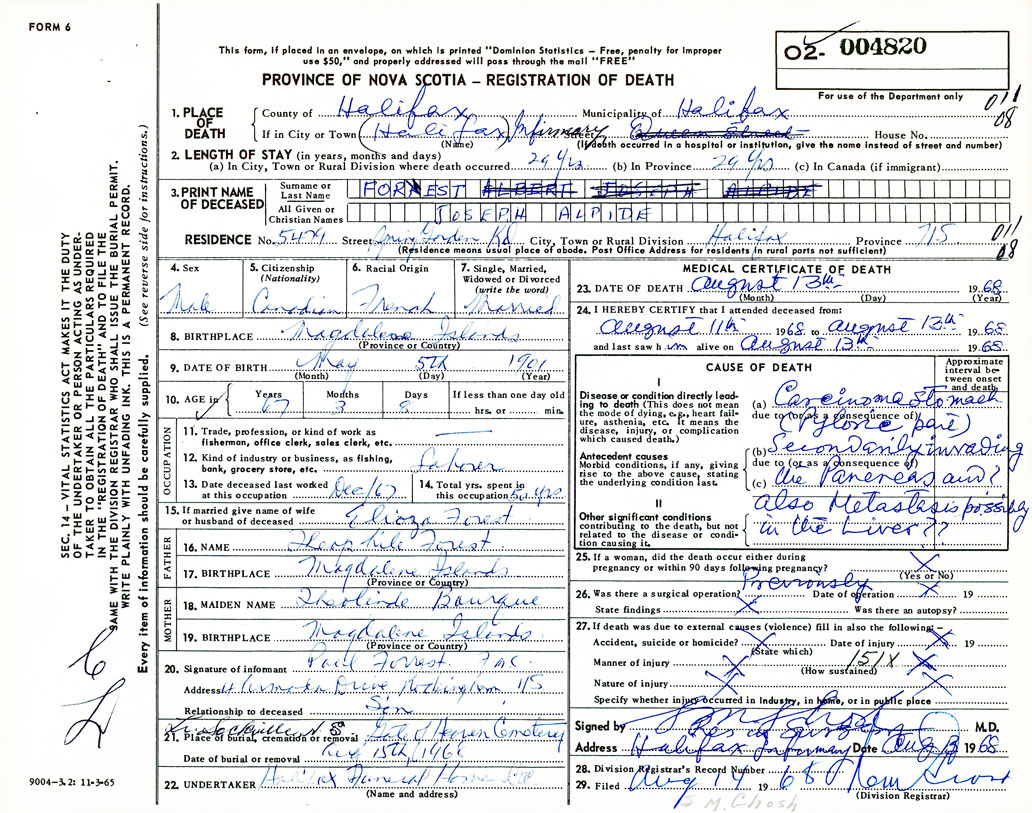 FORM 6
O2- 004820
This form, if placed in an envelope, on which is printed "Dominion Statistics – Free, penalty for improper
use $50," and properly addressed will pass through the mail "FREE"
PROVINCE OF NOVA SCOTIA – REGISTRATION OF DEATH
For use of the Department only
011
08
1. PLACE OF DEATH
County of Halifax Municipality of Halifax
If in City or Town (Halifax) Infirmary Queen Street House No.
(Name) (If death occurred in a hospital or institution, give the name instead of street and number)
2. LENGTH OF STAY (in years, months and days)
(a) In City, Town or Rural Division where death occurred 29 Yrs. (b) In Province 29 Yrs (c) In Canada (if immigrant)
3. PRINT NAME OF DECEASED
Surname or Last Name FORNEST ALBERT JOSEPH ALPIDE
All Given or Christian Names JOSEPH ALPIDE
RESIDENCE No. 5479 Street Rd. City, Town or Rural Division Halifax Province 715
011
08
(Residence means usual place of abode. Post Office Address for residents in rural parts not sufficient)
4. Sex Male
5. Citizenship (Nationality) Canadian
6. Racial Origin French
7. Single, Married, Widowed or Divorced (write the word) Married
8. BIRTHPLACE Magdalene Islands
(Province or Country)
9. DATE OF BIRTH May 5th 1901
(Month) (Day) (Year)
10. AGE in Years 67 Months 3 Days 8 If less than one day old hrs. or min.
OCCUPATION
11. Trade, profession, or kind of work as fisherman, office clerk, sales clerk, etc.
12. Kind of industry or business, as fishing, bank, grocery store, etc. Laborer
13. Date deceased last worked at this occupation Dec/67
14. Total yrs. spent in this occupation 50 yrs.
15. If married give name of wife or husband of deceased Elioza Forest
FATHER
16. NAME Theophile Forest
17. BIRTHPLACE Magdalene Islands
(Province or Country)
MOTHER
18. MAIDEN NAME Theolinde Bourque
19. BIRTHPLACE Magdalene Islands
(Province or Country)
20. Signature of informant Paul Forrest
Address Drive Rockingham
Relationship to deceased Son
Sackville N.S.
21. Place of burial, cremation or removal Gate of Heaven Cemetery
Date of burial or removal Aug 15th/1968
22. UNDERTAKER Halifax Funeral Home Ltd.
(Name and address)
MEDICAL CERTIFICATE OF DEATH
23. DATE OF DEATH August 13th 1968
(Month) (Day) (Year)
24. I HEREBY CERTIFY that I attended deceased from:
August 11th 1968 to August 13th 1968
and last saw him alive on August 13th 1968
CAUSE OF DEATH
Approximate interval between onset and death
I
Disease or condition directly leading to death (This does not mean the mode of dying, e.g., heart failure, asthenia, etc. It means the disease, injury, or complication which caused death.)
(a) Carcinoma Stomach
due to (or as a consequence of)
(Pyloric part)
Antecedent causes
Morbid conditions, if any, giving rise to the above cause, stating the underlying condition last.
(b) Secondarily invading
due to (or as a consequence of)
(c) the Pancreas and?
II
Other significant conditions contributing to the death, but not related to the disease or condition causing it.
also Metastasis possibly
in the Liver??
25. If a woman, did the death occur either during
pregnancy or within 90 days following pregnancy? (Yes or No)
Previously
26. Was there a surgical operation? Date of operation 19
State findings Was there an autopsy?
27. If death was due to external causes (violence) fill in also the following:–
Accident, suicide or homicide? Date of injury 19
(State which)
Manner of injury 151X
(How sustained)
Nature of injury
Specify whether injury occurred in Industry, in home, or in public place
Signed by M.D.
Address Halifax Infirmary Date Aug 13 1968
28. Division Registrar's Record Number
29. Filed Aug 19 1968
(Division Registrar)
M. Ghosh
SEC. 14 – VITAL STATISTICS ACT MAKES IT THE DUTY
OF THE UNDERTAKER OR PERSON ACTING AS UNDER-
TAKER TO OBTAIN ALL THE PARTICULARS REQUIRED
IN THE "REGISTRATION OF DEATH" AND TO FILE THE
SAME WITH THE DIVISION REGISTRAR WHO SHALL ISSUE THE BURIAL PERMIT.
WRITE PLAINLY WITH UNFADING INK. THIS IS A PERMANENT RECORD.
Every item of information should be carefully supplied. (See reverse side for instructions.)
9004–3.2: 11-3-65